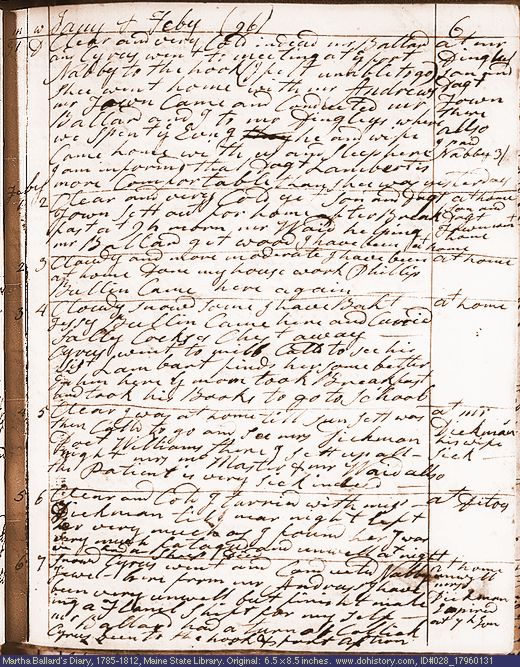 m w Jany & Feby (96) 6
31 D Clear and very Cold indeed mr Ballard at mr
and Cyrus went to meeting at Dingleys
Nabby to the hook I felt unable to go son and
Shee went home with mr Andrews Dagt
mr Town Came and Conducted mr Town
Ballard and I to mr Dingleys where there
we spent ye Evng he and wife allso
Came home with us and sleep here Nabby 31
I am informd that Dagt Lambert is
more Comfortable than shee was yesterday
Feby 1 2 Clear and very Cold ye Son and Dagt at home
Town sett out for home after Break Son and Dagt
fast at 9 h morn mr Waid helping Town went
mr Ballard get wood I have been at home home
2 3 Clowdy and more moderate I have been at home
at home Done my house work Phillip
Bullin Came here again
3 4 Clowdy snowd some I have Bakt at home
Jessy Bullin Came here and Carried
Sally Cocks's Chest away
Cyrus went to mill Calld to see his
Sist Lambart find her some better
Ephm here ys morn took Breakfast
and took his Books to go to School
4 5 Clear I was at home till sun sett was at mr
then Calld to go and see mrs Dickman Dickman
Doct Williams there I sett up all his wife
night mrs Master & mr Waid also sick
the Patient is very sick indeed
5 6 Clear and Cold I tarried with mrs at Ditos
Dickman till near night left
her very much as I found her I was
very much fatagud and unwell at night
6 7 Snowd Cyrus went and Conducted Nabby at home
Jewel here from mr Andros I have mrs
been very unwell but finisht make Dickman
ing a Flanel Shift for my self Expired
mr Ballard had a turn of Collick at 7 h Evn
Cyrus went to the hook